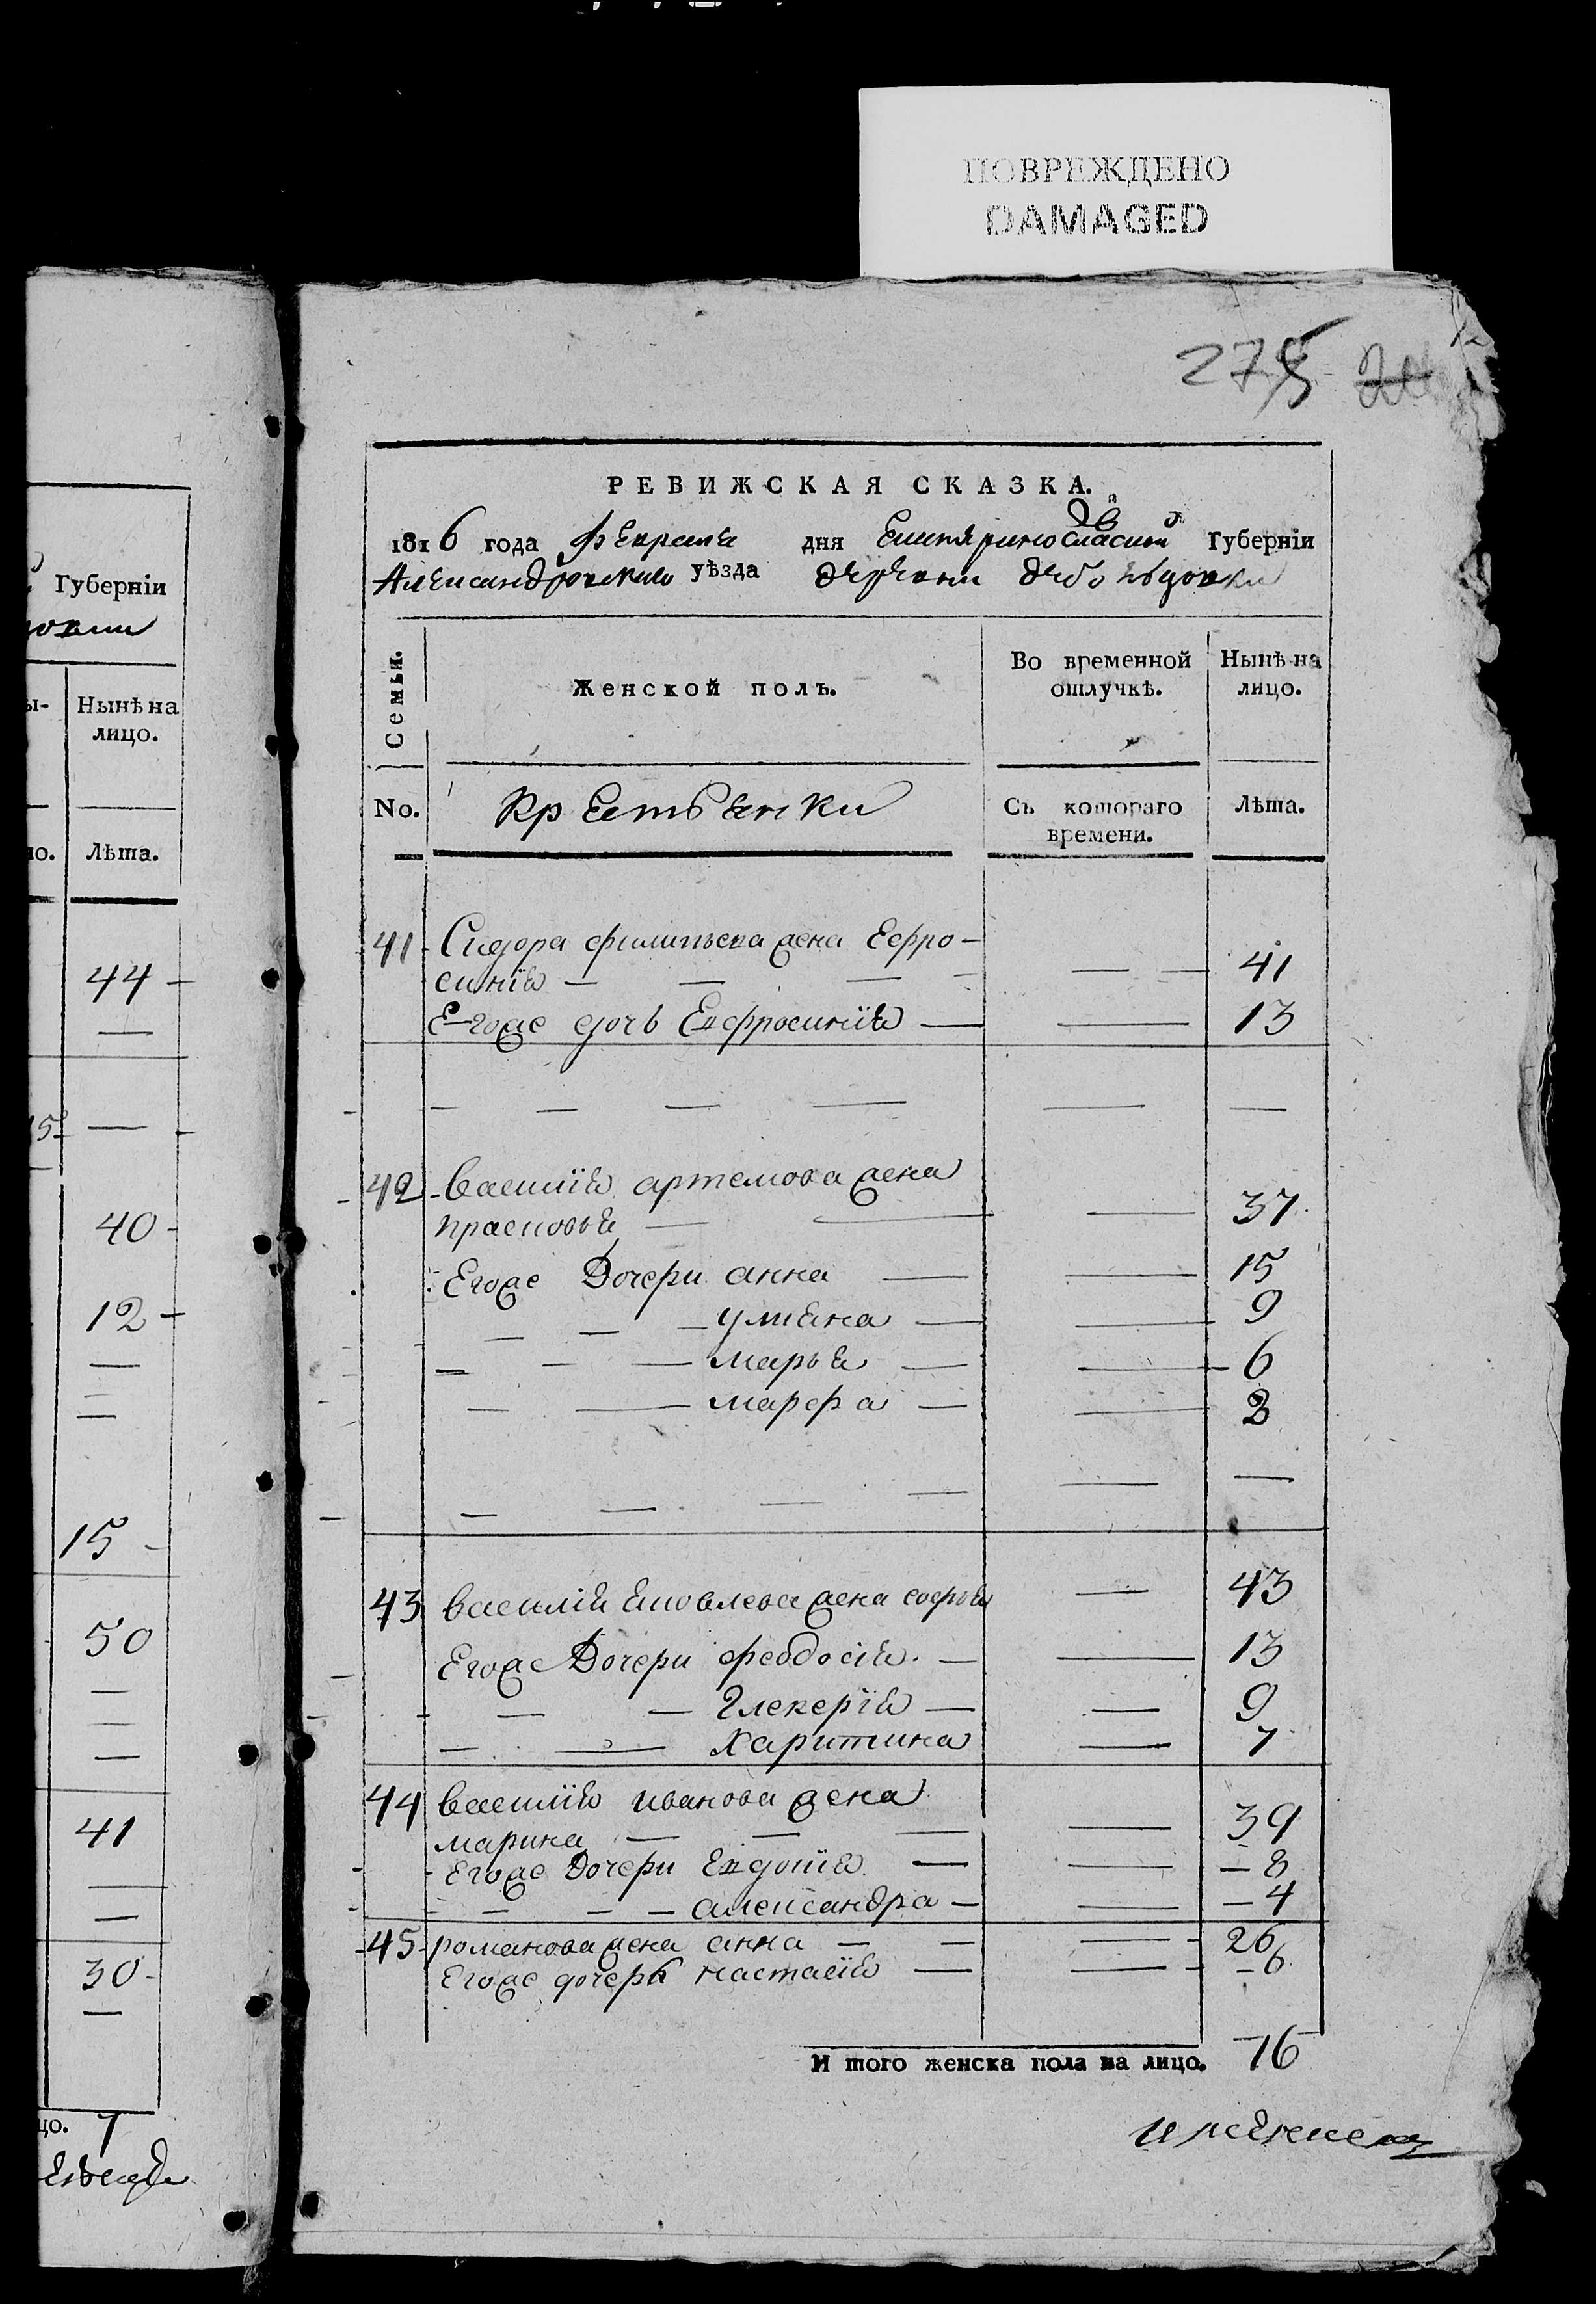 ПОВРЕЖДЕНО
DAMAGED
275
РЕВИЖСКАЯ СКАЗКА.
1816 года февраля дня Екатеринославской Губерніи
Александровского уѣзда деревни
Семьи.
Женской полъ.
Во временной отлучкѣ.
Нынѣ на лицо.
No.
Крестьянки
Съ котораго времени.
Лѣта.
41 Сидора филипьева жена Ефро-
синія — — — — 41
Егоже дочь Евфросинія — — 13
42 василія артемова жена
прасковья — — — 37
Егоже Дочери анна — — 15
— — — улияна — — 9
— — — марья — — 6
— — марфа — — 3
43 василія яковлева жена софья — 43
Егоже Дочери феодосія — — 13
— — Глекерія — — 9
— — Харитина — 7
44 василія иванова жена
марина — — — — 39
Егоже Дочери Евдокія — — 8
— — — александра — — 4
45 романова жена анна — — — 26
Егоже дочерь настасія — — 6
И того женска пола на лицо. 16
Губерніи
Нынѣ на
лицо.
Лѣта.
44
15
40
12
15
50
41
30
цо. 7